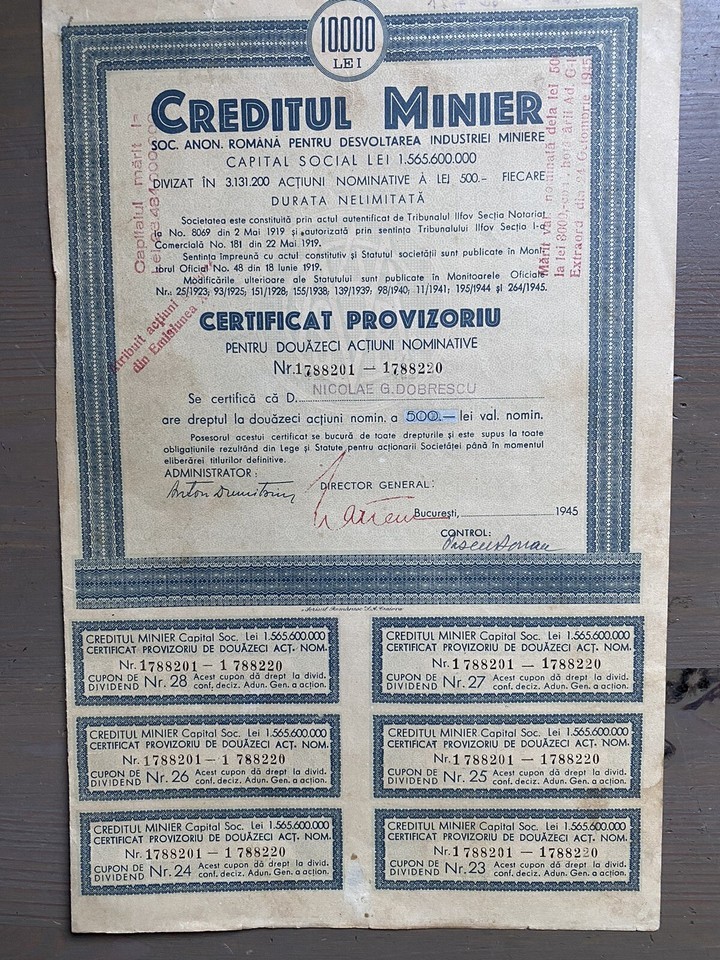 10.000
LEI
CREDITUL MINIER
SOC. ANON. ROMÂNĂ PENTRU DESVOLTAREA INDUSTRIEI MINIERE
CAPITAL SOCIAL LEI 1.565.600.000
DIVIZAT ÎN 3.131.200 ACŢIUNI NOMINATIVE Á LEI 500.– FIECARE
DURATA NELIMITATĂ
Societatea este constituită prin actul autentificat de Tribunalul Ilfov Secţia Notariat
la No. 8069 din 2 Mai 1919 şi autorizată prin sentinţa Tribunalului Ilfov Secţia I-a
Comercială No. 181 din 22 Mai 1919.
Sentinţa împreună cu actul constitutiv şi Statutul societăţii sunt publicate în Moni-
torul Oficial No. 48 din 18 Iunie 1919.
Modificările ulterioare ale Statutului sunt publicate în Monitoarele Oficiale
Nr.: 25/1923; 93/1925; 151/1928; 155/1938; 139/1939; 98/1940; 11/1941; 195/1944 şi 264/1945.
Capitalul mărit
tribuit acţiuni
din Emisiunea
Mărit val. nominală dela lei 50
la lei
Extraord din
CERTIFICAT PROVIZORIU
PENTRU DOUĂZECI ACŢIUNI NOMINATIVE
Nr. 1788201 — 1788220
Se certifică că D. NICOLAE G. DOBRESCU
are dreptul la douăzeci acţiuni nomin. a 500.— lei val. nomin.
Posesorul acestui certificat se bucură de toate drepturile şi este supus la toate
obligaţiunile rezultând din Lege şi Statute pentru acţionarii Societăţei până în momentul
eliberărei titlurilor definitive.
ADMINISTRATOR:
DIRECTOR GENERAL:
Bucureşti, 1945
CONTROL:
CREDITUL MINIER Capital Soc. Lei 1.565.600.000
CERTIFICAT PROVIZORIU DE DOUĂZECI ACŢ. NOM.
Nr. 1788201 – 1 788220
CUPON DE DIVIDEND Nr. 28 Acest cupon dă drept la divid.
conf. deciz. Adun. Gen. a acţion.
CREDITUL MINIER Capital Soc. Lei 1.565.600.000
CERTIFICAT PROVIZORIU DE DOUĂZECI ACŢ. NOM.
Nr. 1788201 — 1788220
CUPON DE DIVIDEND Nr. 27 Acest cupon dă drept la divid.
conf. deciz. Adun. Gen. a acţion.
CREDITUL MINIER Capital Soc. Lei 1.565.600.000
CERTIFICAT PROVIZORIU DE DOUĂZECI ACŢ. NOM.
Nr. 1788201 – 1 788220
CUPON DE DIVIDEND Nr. 26 Acest cupon dă drept la divid.
conf. deciz. Adun. Gen. a acţion.
CREDITUL MINIER Capital Soc. Lei 1.565.600.000
CERTIFICAT PROVIZORIU DE DOUĂZECI ACŢ. NOM.
Nr. 1788201 — 1788220
CUPON DE DIVIDEND Nr. 25 Acest cupon dă drept la divid.
conf. deciz. Adun. Gen. a acţion.
CREDITUL MINIER Capital Soc. Lei 1.565.600.000
CERTIFICAT PROVIZORIU DE DOUĂZECI ACŢ. NOM.
Nr. 1788201 – 1 788220
CUPON DE DIVIDEND Nr. 24 Acest cupon dă drept la divid.
conf. deciz. Adun. Gen. a acţion.
CREDITUL MINIER Capital Soc. Lei 1.565.600.000
CERTIFICAT PROVIZORIU DE DOUĂZECI ACŢ. NOM.
Nr. 1788201 — 1788220
CUPON DE DIVIDEND Nr. 23 Acest cupon dă drept la divid.
conf. deciz. Adun. Gen. a acţion.